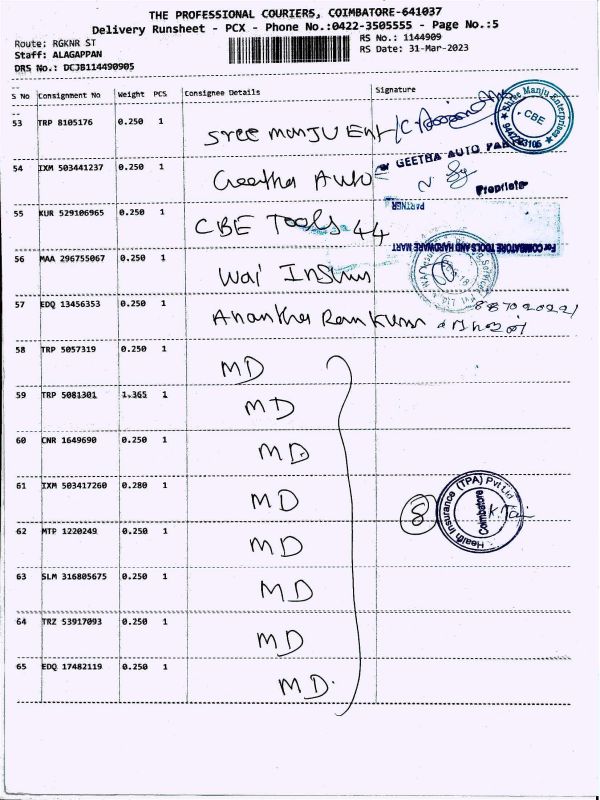 THE PROFESSIONAL COURIERS, COIMBATORE-641037
Delivery Runsheet - PCX - Phone No.:0422-3505555 - Page No.:5
Route: RGKNR ST
RS No.: 1144909
Staff: ALAGAPPAN
RS Date: 31-Mar-2023
DRS No.: DCJB114490905
S No Consignment No Weight PCS Consignee Details Signature
53 TRP 8105176 0.250 1 Sree manju Ent
Shree Manju Enterprises CBE
54 IXM 503441237 0.250 1 Geetha Auto
For GEETHA AUTO
Proprietor
55 KUR 529106965 0.250 1 CBE Tools 44
PARTNER
For COIMBATORE TOOLS AND HARDWARE MART
56 MAA 296755067 0.250 1 Wai Insum
57 EDQ 13456353 0.250 1 Anantha Ram Kum
58 TRP 5057319 0.250 1 MD
59 TRP 5081301 1.365 1 MD
60 CNR 1649690 0.250 1 MD
61 IXM 503417260 0.280 1 MD
8
Health Insurance (TPA) Pvt Ltd Coimbatore
62 MTP 1220249 0.250 1 MD
63 SLM 316805675 0.250 1 MD
64 TRZ 53917093 0.250 1 MD
65 EDQ 17482119 0.250 1 MD.